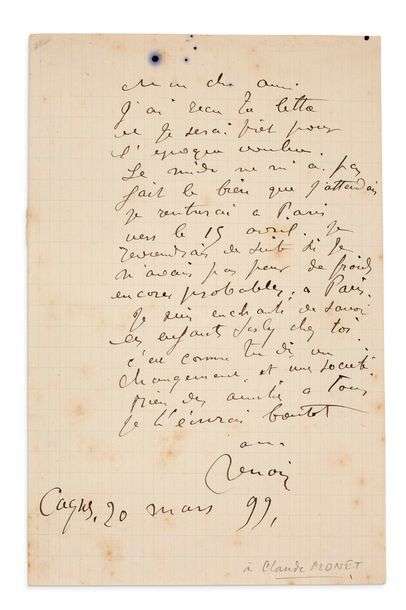 Mon cher ami.
J'ai reçu ta lettre
et je serai prêt pour
l'époque voulue.
Le midi ne m'a pas
fait le bien que j'attendais
je rentrerai à Paris
vers le 15 avril. Je
reviendrais de suite si je
n'avais pas peur de froids
encore probables, à Paris.
Je suis enchanté de savoir
les enfants Sisley chez toi.
c'est comme tu dis un
changement et une société
bien des amitiés a tous
je t'écrirai bientot
ami
Renoir
Cagnes, 20 mars 99,
à Claude MONET